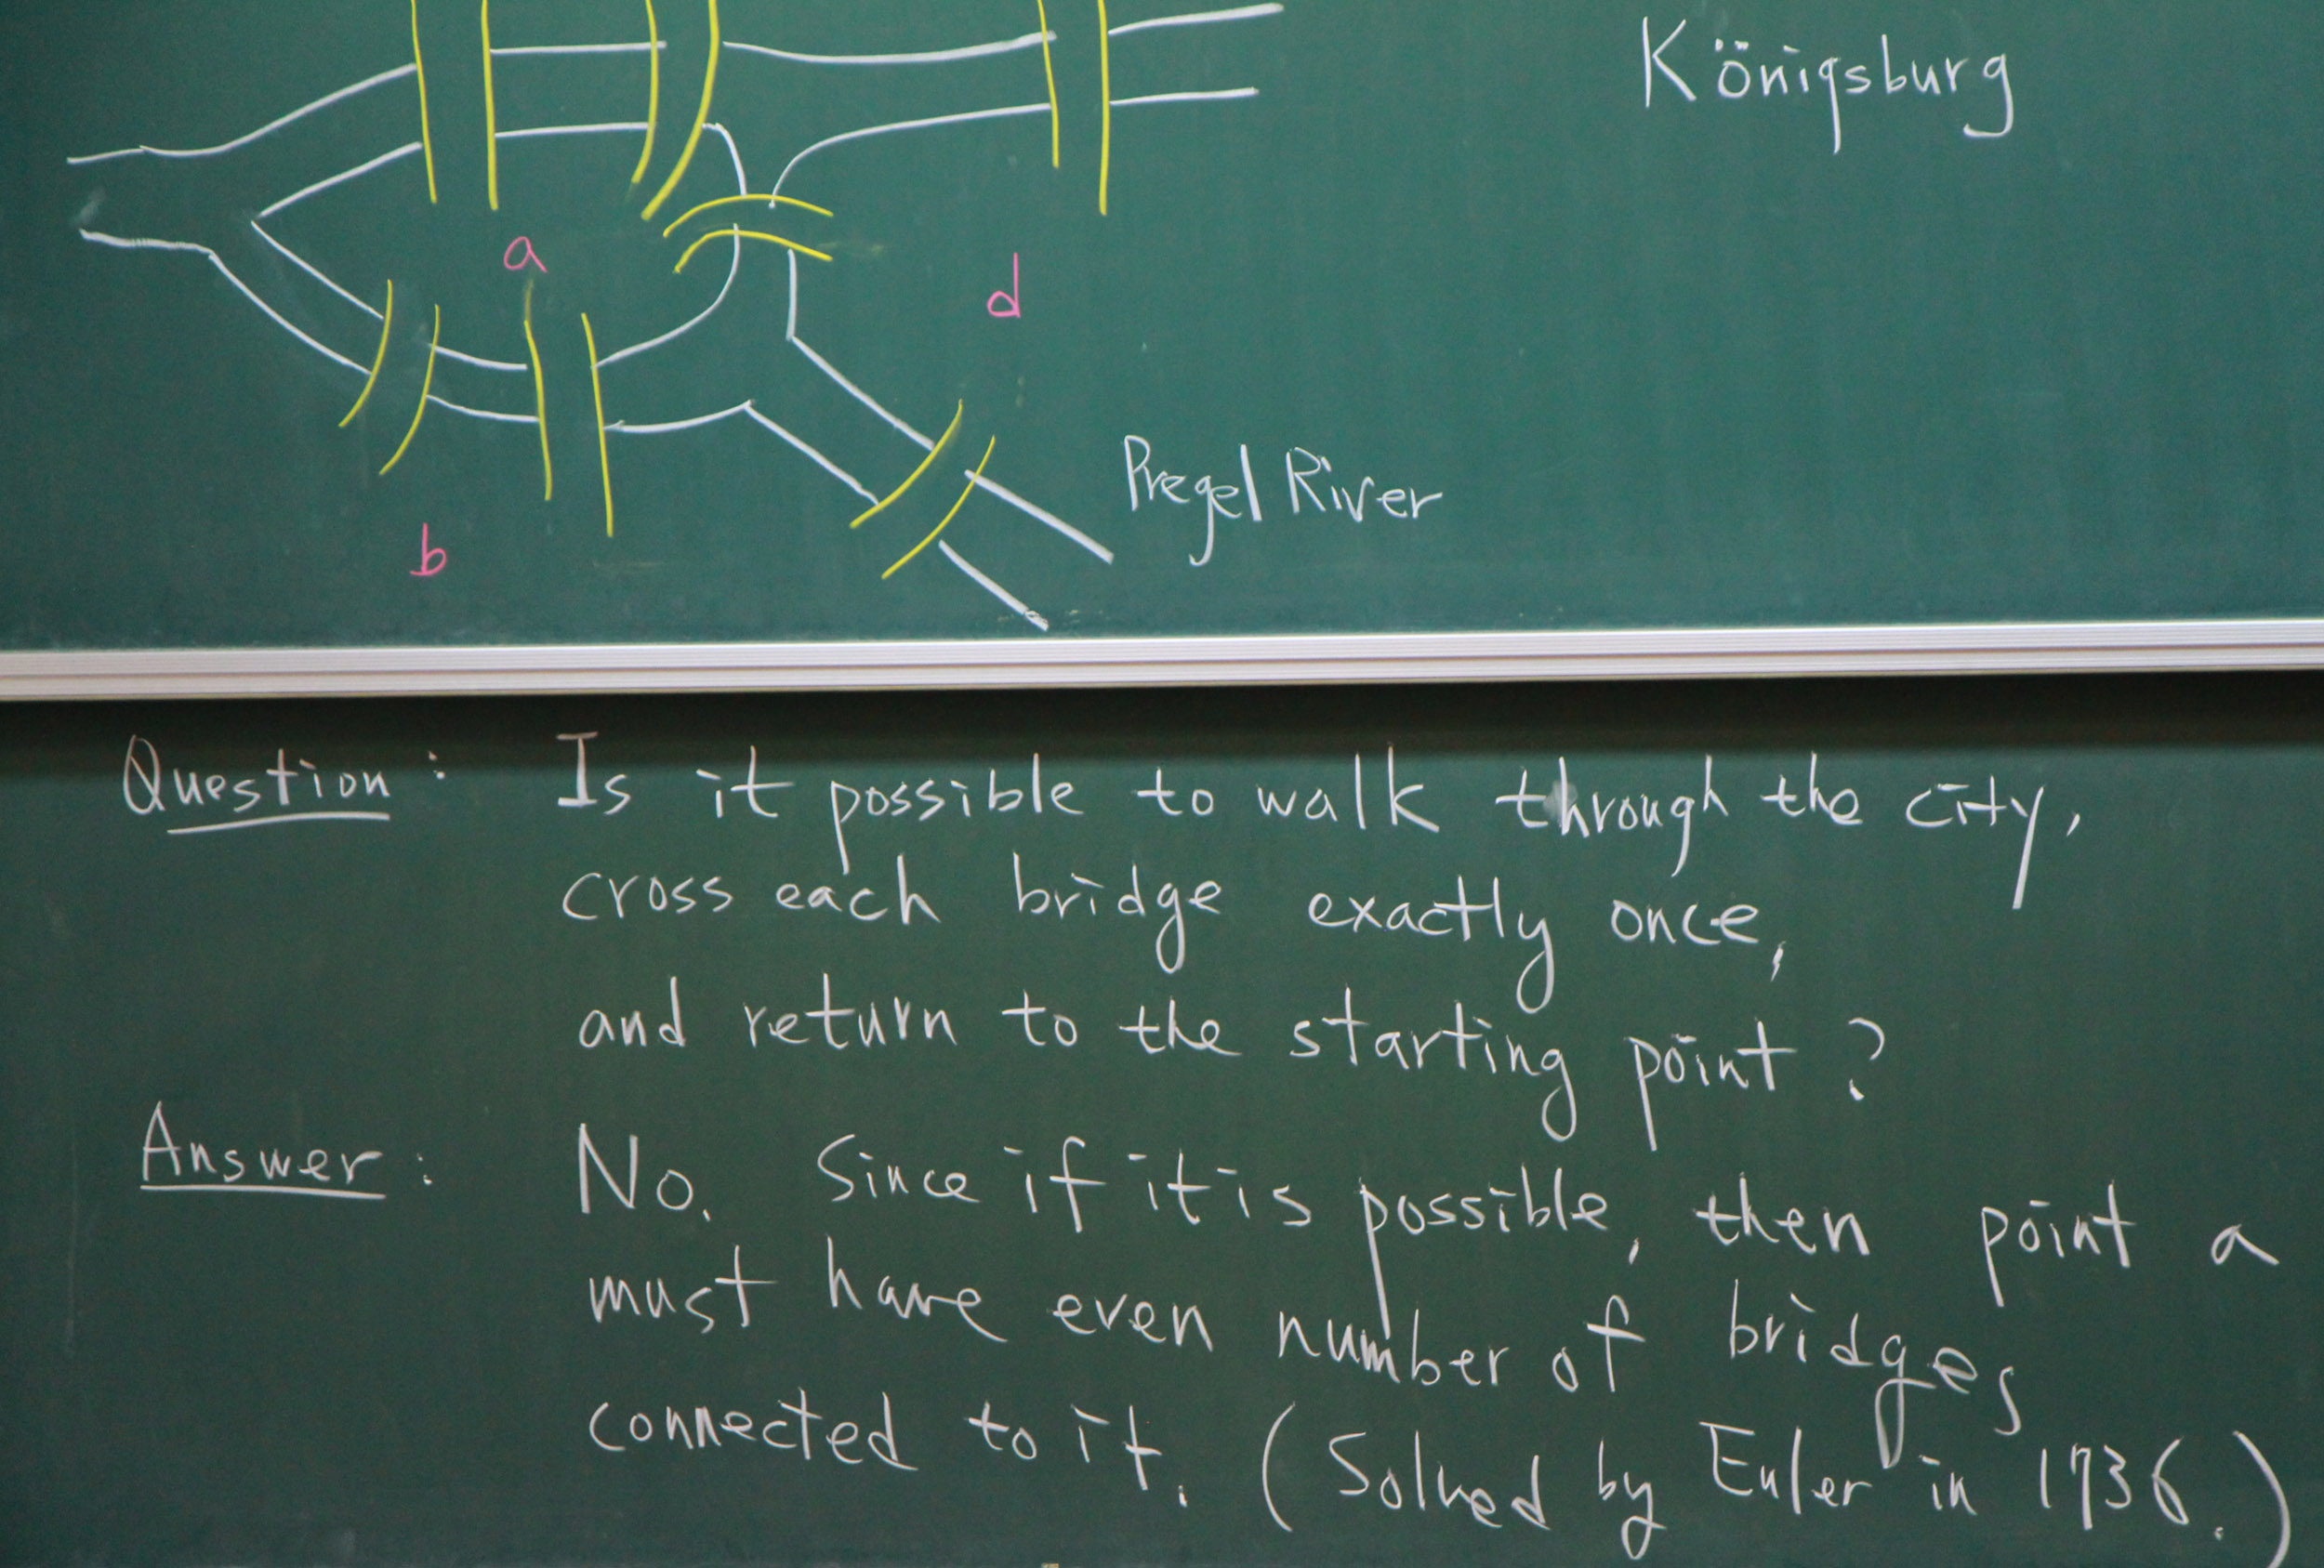 Königsburg
a
d
Pregel River
b
Question: Is it possible to walk through the city,
cross each bridge exactly once,
and return to the starting point?
Answer: No. Since if it is possible, then point a
must have even number of bridges
connected to it. (Solved by Euler in 1736.)